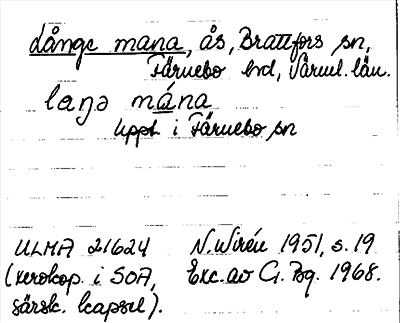 Långe mana, ås, Brattfors sn,
Färnebo hd, Värml. län.
laŋə mána
uppt. i Färnebo sn
ULMA 21624 N. Wirén 1951, s. 19
(xerokop. i SOA, Exc. av G. Bg. 1968.
särsk. kapsel).